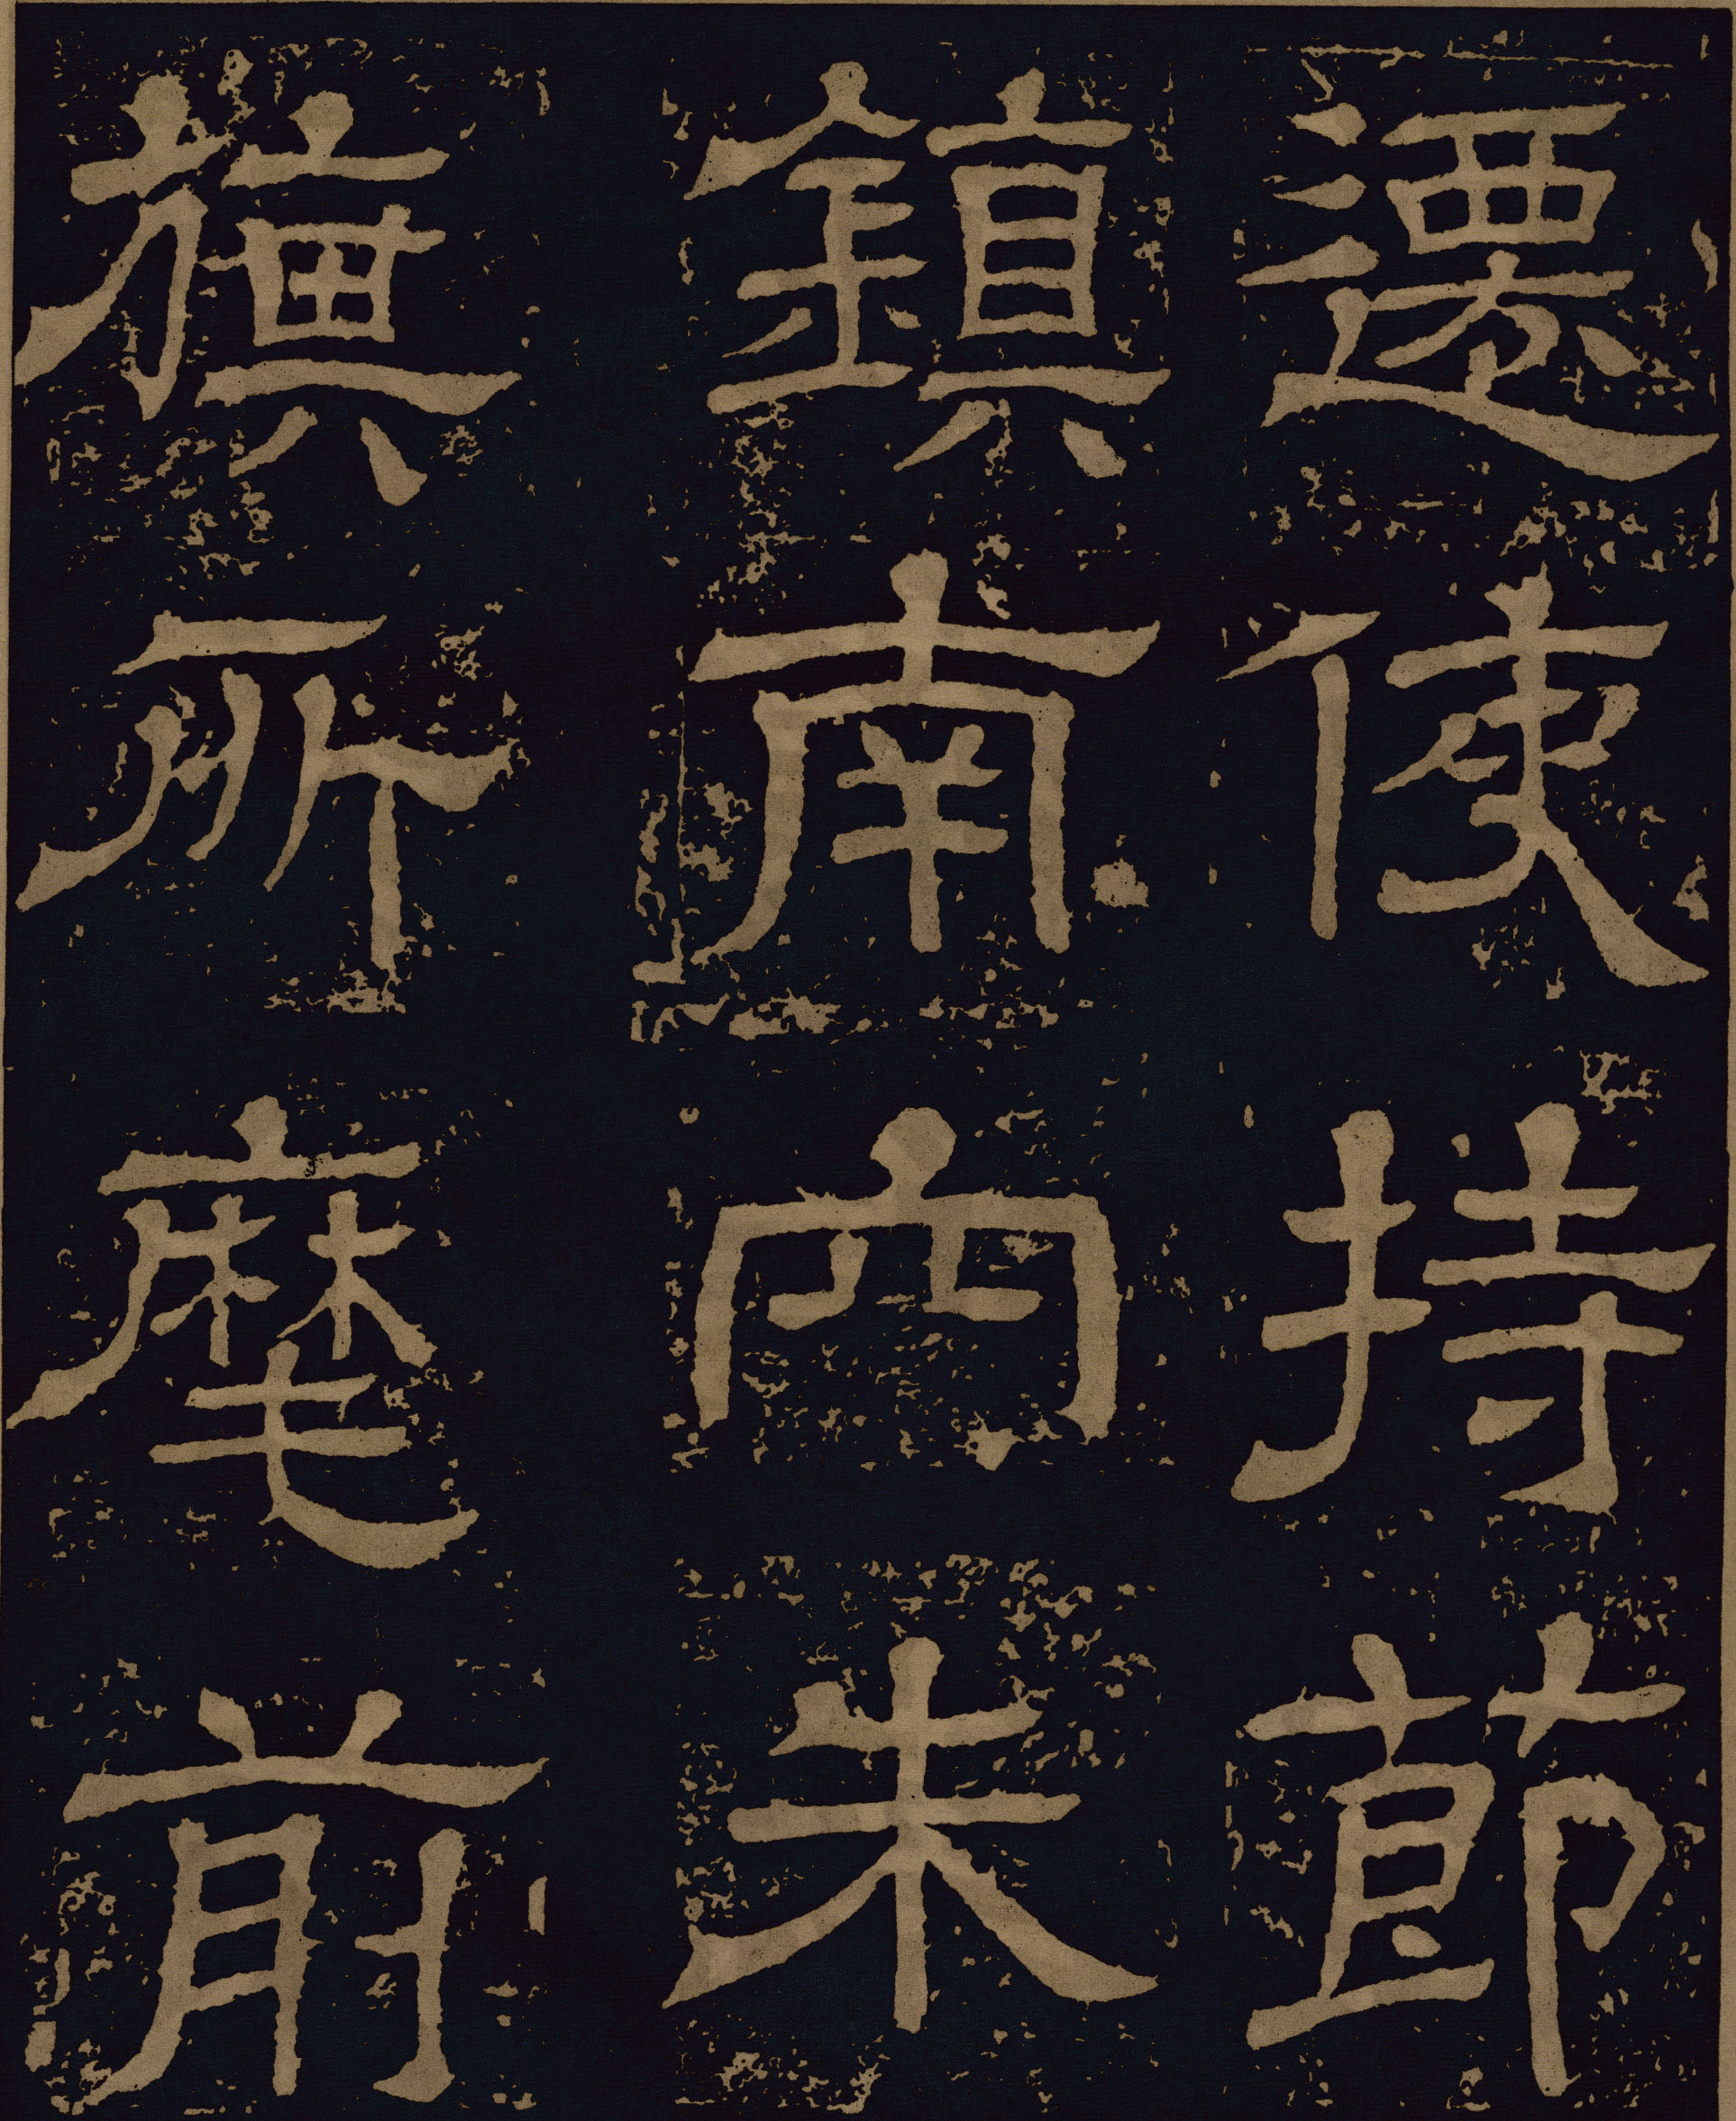 遷使持節
鎮南朱
旗所麾前